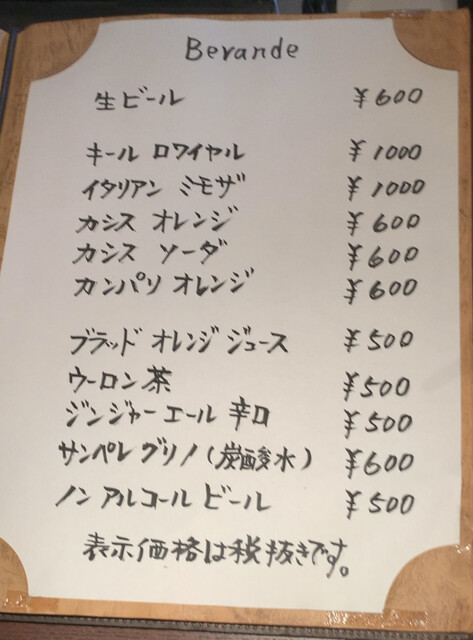 Berande
生ビール ¥600
キール ロワイヤル ¥1000
イタリアン ミモザ ¥1000
カシス オレンジ ¥600
カシス ソーダ ¥600
カンパリ オレンジ ¥600
ブラッド オレンジ ジュース ¥500
ウーロン茶 ¥500
ジンジャーエール 辛口 ¥500
サンペレグリノ(炭酸水) ¥600
ノンアルコール ビール ¥500
表示価格は税抜きです。